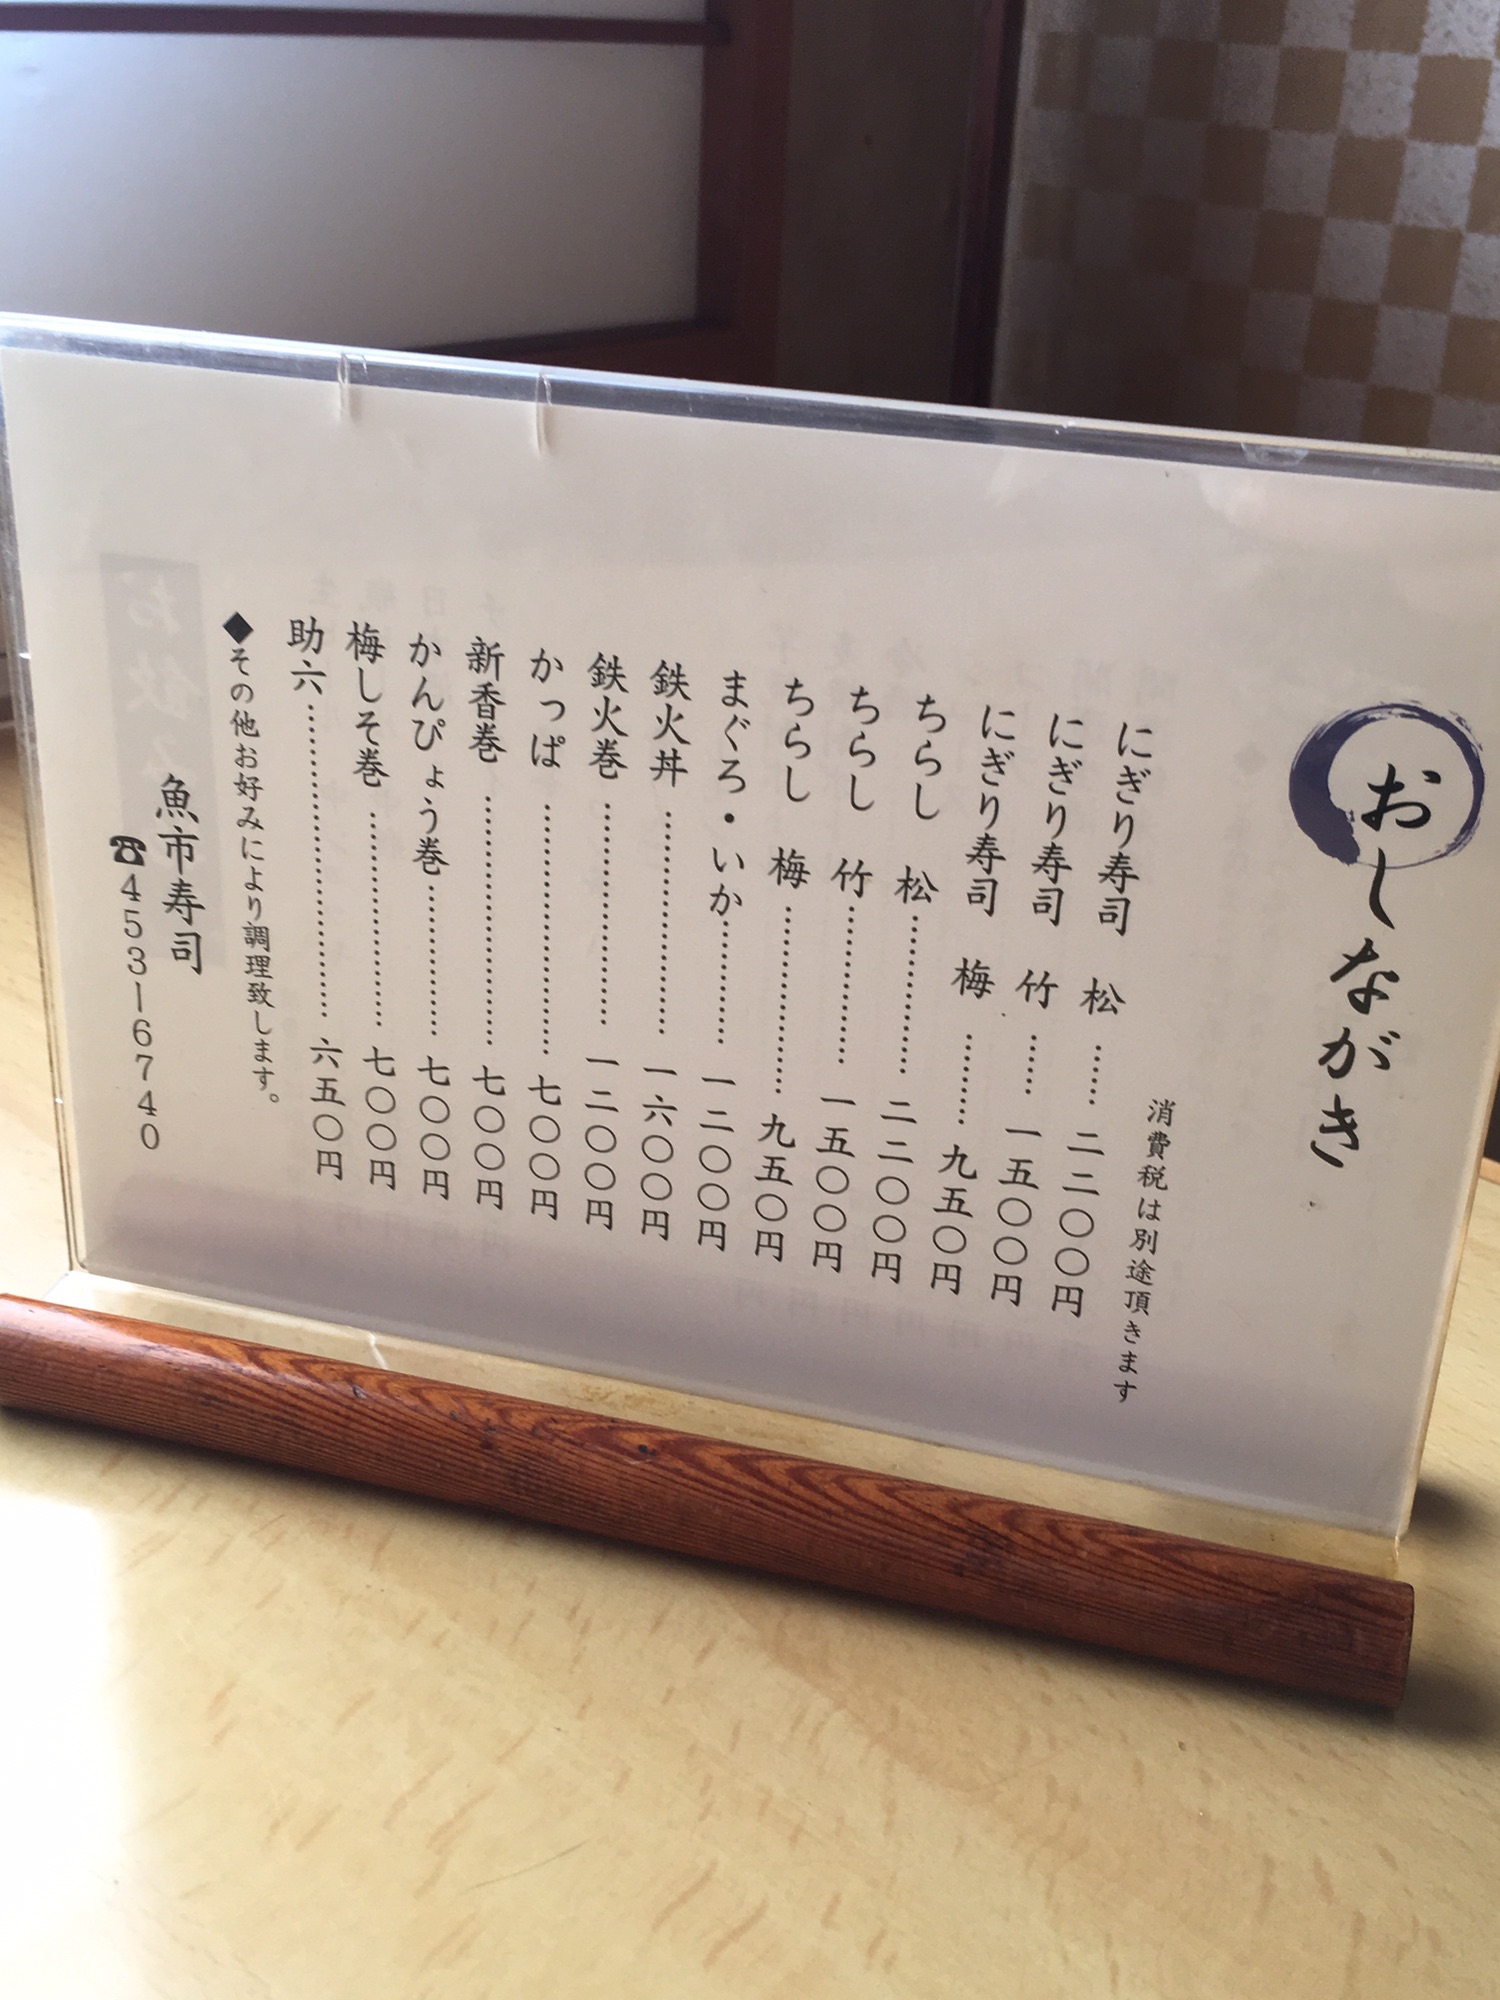 おしながき
消費税は別途頂きます
にぎり寿司 松 …… 二二〇〇円
にぎり寿司 竹 …… 一五〇〇円
にぎり寿司 梅 …… 九五〇円
ちらし 松 …… 二二〇〇円
ちらし 竹 …… 一五〇〇円
ちらし 梅 …… 九五〇円
まぐろ・いか …… 一二〇〇円
鉄火丼 …… 一六〇〇円
鉄火巻 …… 一二〇〇円
かっぱ …… 七〇〇円
新香巻 …… 七〇〇円
かんぴょう巻 …… 七〇〇円
梅しそ巻 …… 七〇〇円
助六 …… 六五〇円
◆その他お好みにより調理致します。
魚市寿司
☎453ー6740